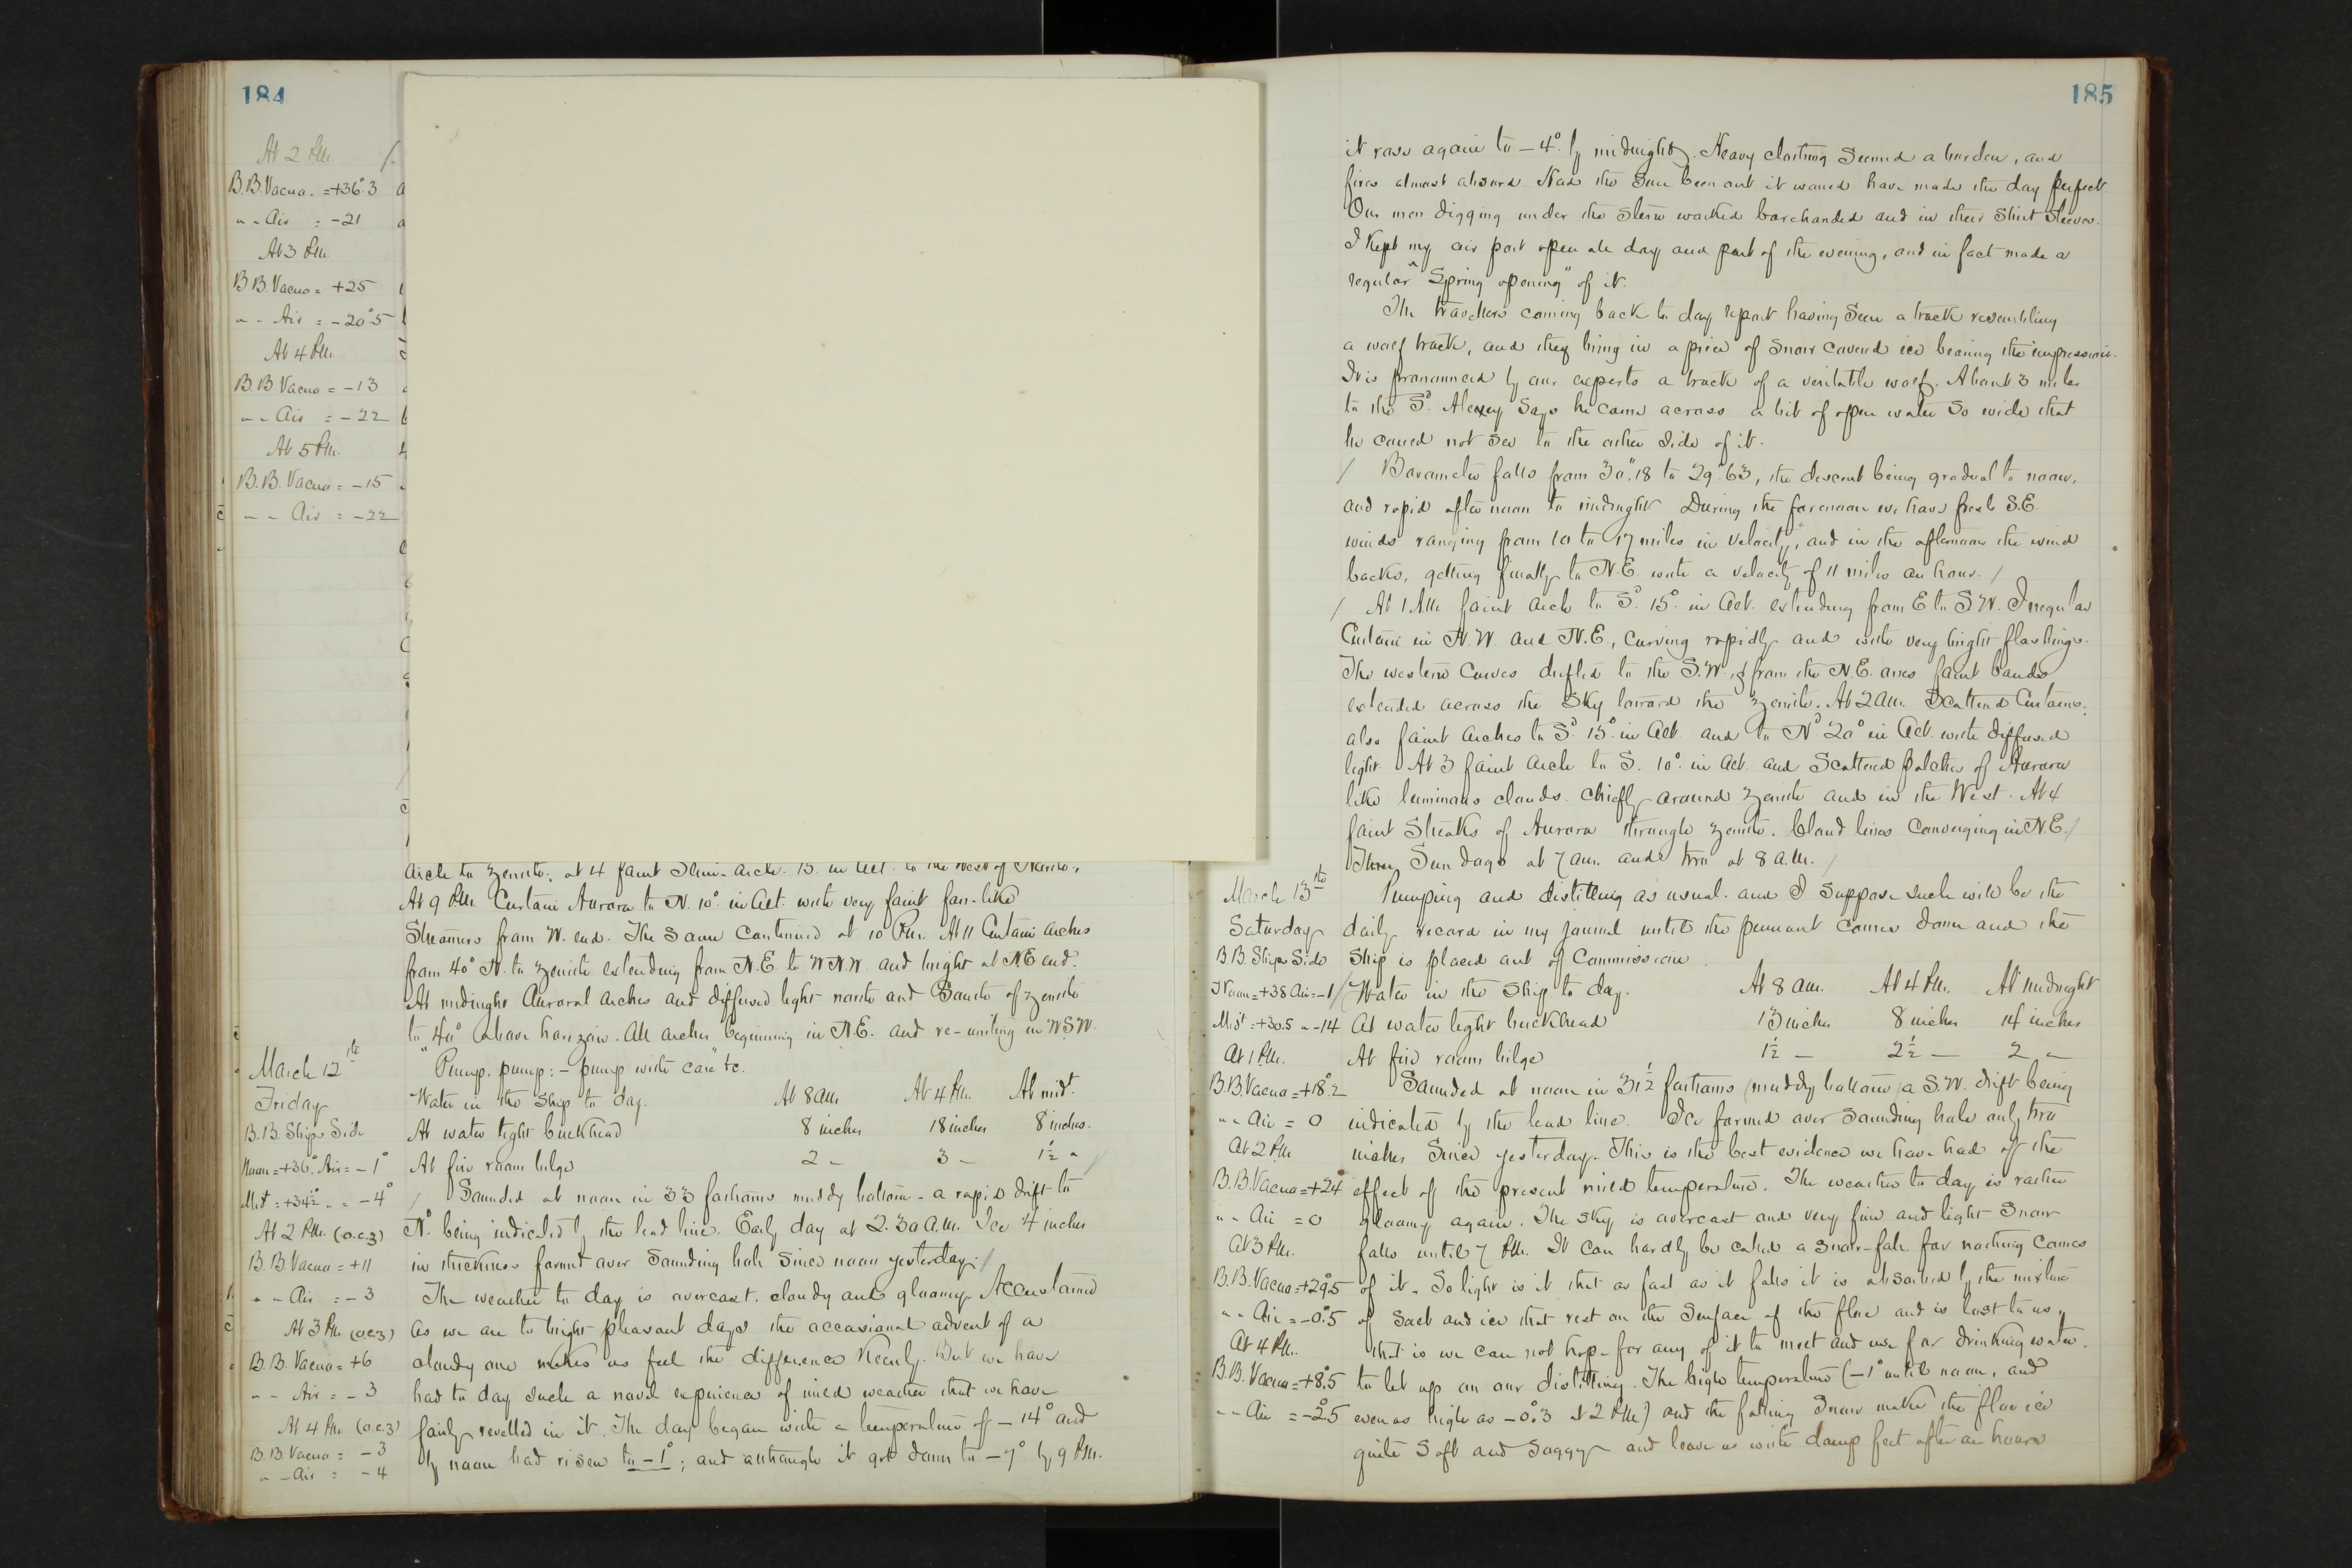 184
At 2 P.M.
B.B. Vacuo. = +36°.3
" " Air = -21
At 3 P.M.
B.B. Vacuo = +25
" " Air = -20°.5
At 4 P.M.
B.B. Vacuo = -13
" " Air = -22
At 5 P.M.
B.B. Vacuo = -15
" " Air = -22
arch to zenith; at 4 faint semi-arch. 15° in alt. to the West of North.
At 9 P.M. Curtain Aurora to N. 10° in alt. with very faint fan-like
streamers from W. end. The same continued at 10 P.M. At 11 Curtain arches
from 40° N. to zenith extending from N.E. to W.N.W. and bright at N.E. end.
At midnight Auroral arches and diffused light north and South of zenith
to 40° above horizon. All arches beginning in N.E. and re-uniting in W.S.W.
March 12th
Friday
B.B. Ship's Side
Noon = +36°. Air = -1°
Mid't = +34½ " = -4°
At 2 P.M. (o.c.3)
B.B. Vacuo = +11
" " Air = -3
At 3 P.M. (o.c.3)
B.B. Vacuo = +6
" " Air = -3
At 4 P.M. (o.c.3)
B.B. Vacuo = -3
" " Air = -4
"Pump. pump: - pump with care" &c.
Water in the ship to day. At 8 A.M. At 4 P.M. At mid't.
At water tight bulkhead 8 inches 18 inches 8 inches.
At fire room bilge 2 " 3 " 1½ "
/ Sounded at noon in 33 fathoms muddy bottom - a rapid drift to
N° being indicated by the lead line. Early day at 2.30 A.M. Ice 4 inches
in thickness formed over sounding hole since noon yesterday. /
The weather to day is overcast. cloudy and gloomy. Accustomed
as we are to bright pleasant days the occasional advent of a
cloudy one makes us feel the difference keenly. But we have
had to day such a novel experience of mild weather that we have
fairly revelled in it. The day began with a temperature of -14° and
by noon had risen to -1°; and although it got down to -7° by 9 P.M.
185
it rose again to -4° by midnight. Heavy clothing seemed a burden, and
fires almost absurd. Had the sun been out it would have made the day perfect.
Our men digging under the stern worked barehanded and in their shirt sleeves.
I kept my air port open all day and part of the evening, and in fact made a
regular "Spring opening" of it.
The travellers coming back to day report having seen a track resembling
a wolf track, and they bring in a piece of snow covered ice bearing the impression.
It is pronounced by our experts a track of a veritable wolf. About 3 miles
to the S° Alexey says he came across a bit of open water so wide that
he could not see to the other side of it.
/ Barometer falls from 30".18 to 29".63, the descent being gradual to noon,
and rapid after noon to midnight. During the forenoon we have fresh S.E.
winds ranging from 10 to 17 miles in velocity, and in the afternoon the wind
backs, getting finally to N.E. with a velocity of 11 miles an hour. /
/ At 1 A.M. faint arch to S° 15° in alt. extending from E to S.W. Irregular
Curtain in N.W. and N.E., curving rapidly and with very bright flashings.
The western curves drifted to the S.W. & from the N.E. ones faint bands
extended across the sky toward the zenith. At 2 A.M. Scattered Curtains;
also faint arches to S° 15° in alt. and to N° 20° in alt. with diffused
light. At 3 faint arch to S. 10° in alt. and scattered patches of Aurora
like luminous clouds. chiefly around zenith and in the West. At 4
faint streaks of Aurora through zenith. Cloud lines converging in N.E. /
Three Sun dogs at 7 A.M. and two at 8 A.M. /
March 13th
Saturday
B.B. Ship's Side
Noon = +38 Air = -1
Mid't = +30.5 " -14
At 1 P.M.
B.B. Vacuo = +18°.2
" " Air = 0
At 2 P.M.
B.B. Vacuo = +24°
" " Air = 0
At 3 P.M.
B.B. Vacuo = +29°.5
" " Air = -0°.5
At 4 P.M.
B.B. Vacuo = +8°.5
" " Air = -2°.5
Pumping and distilling as usual. and I suppose such will be the
daily record in my journal until the pennant comes down and the
ship is placed out of Commission.
/ Water in the ship to day. At 8 A.M. At 4 P.M. At midnight
At water tight bulkhead 13 inches 8 inches 14 inches
At fire room bilge 1½ " 2½ " 2 "
Sounded at noon in 31½ fathoms (muddy bottom) a S.W. drift being
indicated by the lead line. Ice formed over sounding hole only two
inches since yesterday. This is the best evidence we have had of the
effect of the present mild temperature. The weather to day is rather
gloomy again. The sky is overcast and very fine and light snow
falls until 7 P.M. It can hardly be called a snow-fall. for nothing comes
of it. So light is it that as fast as it falls it is absorbed by the mixture
of salt and ice that rest on the surface of the floe and is lost to us,
that is we can not hope for any of it to melt and use for drinking water.
to let up on our distilling. The high temperature (-1° until noon, and
even as high as -0°.3 at 2 P.M.) and the falling snow makes the floe ice
quite soft and soggy and leave us with damp feet after an hours